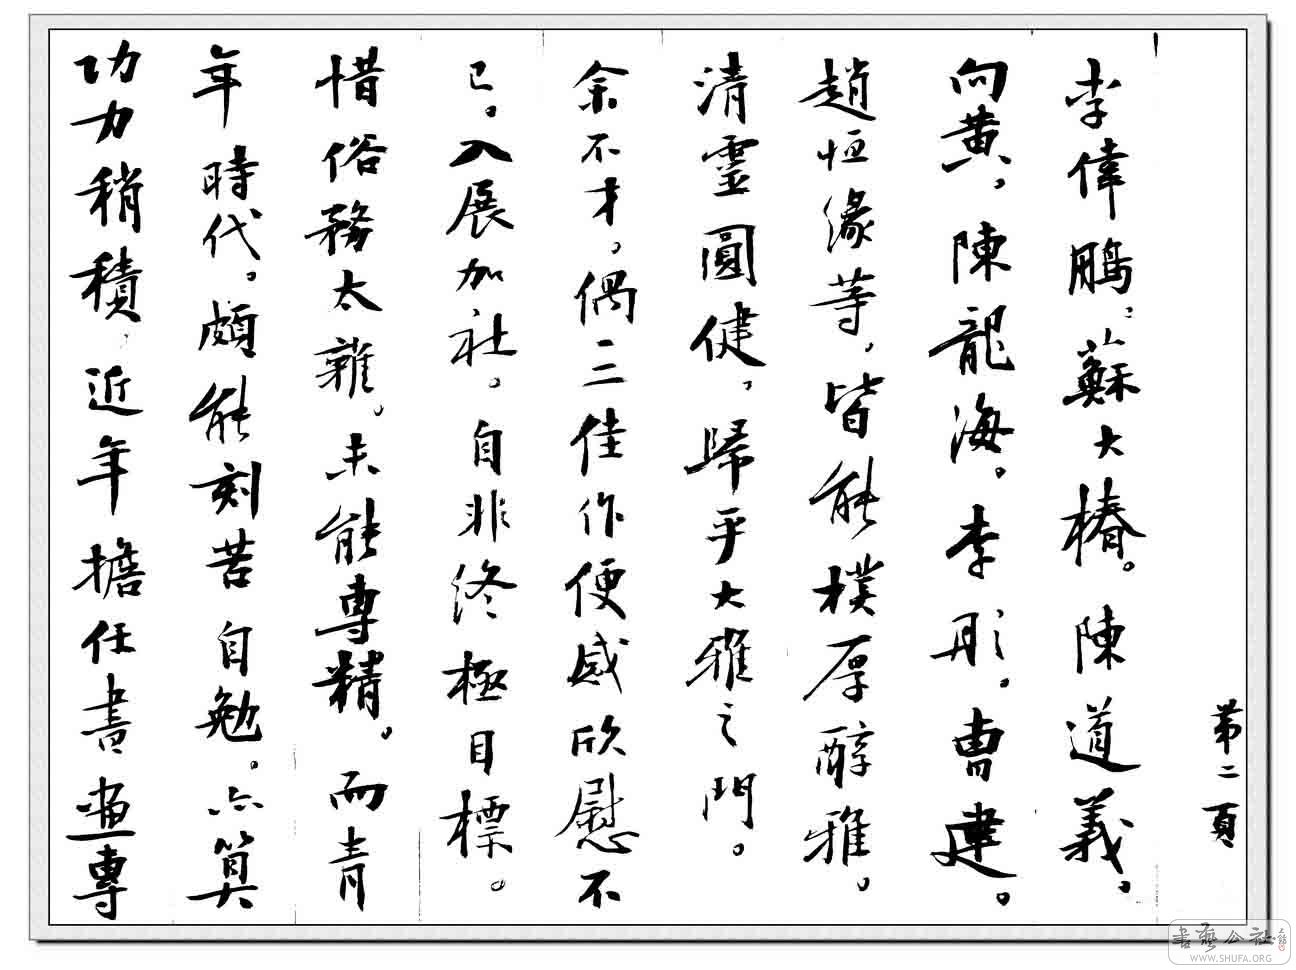 第二頁
李偉鵬、蘇大椿。陳道義。
向黃，陳龍海。李彤。曹建。
趙恒緣等，皆能樸厚醇雅。
清靈圓健，歸乎大雅之門。
余不才，偶二佳作便感欣慰不
已。入展加社。自非終極目標。
惜俗務太雜。未能專精。而青
年時代。頗能刻苦自勉。亦算
功力稍積，近年擔任書畫專
書藝公社
WWW.SHUFA.ORG